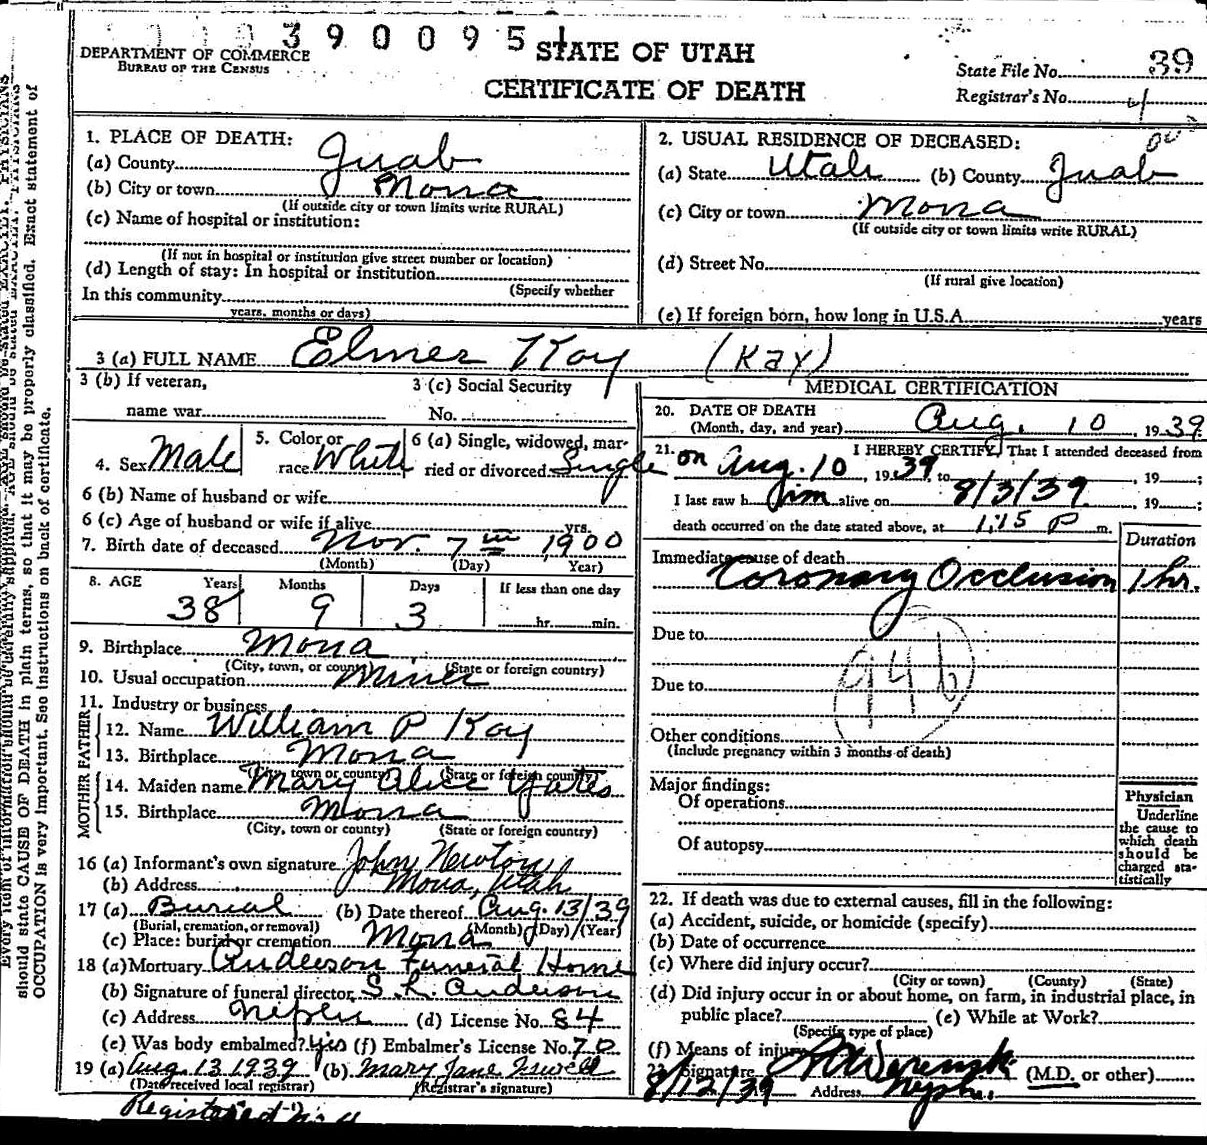 390095
DEPARTMENT OF COMMERCE
BUREAU OF THE CENSUS
STATE OF UTAH
CERTIFICATE OF DEATH
State File No. 39
Registrar's No. 4
1. PLACE OF DEATH:
(a) County Juab
(b) City or town Mona
(If outside city or town limits write RURAL)
(c) Name of hospital or institution:
(If not in hospital or institution give street number or location)
(d) Length of stay: In hospital or institution
(Specify whether
In this community
years, months or days)
2. USUAL RESIDENCE OF DECEASED:
(a) State Utah (b) County Juab
(c) City or town Mona
(If outside city or town limits write RURAL)
(d) Street No.
(If rural give location)
(e) If foreign born, how long in U.S.A. years
3 (a) FULL NAME Elmer Kay (Kay)
3 (b) If veteran,
name war
3 (c) Social Security
No.
4. Sex Male
5. Color or
race White
6 (a) Single, widowed, mar-
ried or divorced Single
6 (b) Name of husband or wife
6 (c) Age of husband or wife if alive yrs.
7. Birth date of deceased Nov. 7th 1900
(Month) (Day) Year)
8. AGE Years Months Days If less than one day
38 9 3 hr. min.
9. Birthplace Mona
(City, town, or county) (State or foreign country)
10. Usual occupation Miner
11. Industry or business
FATHER
12. Name William P Kay
13. Birthplace Mona
(City, town or county) (State or foreign country)
MOTHER
14. Maiden name Mary Alice Yates
15. Birthplace Mona
(City, town or county) (State or foreign country)
16 (a) Informant's own signature John Newton
(b) Address Mona, Utah
17 (a) Burial (b) Date thereof Aug. 13/39
(Burial, cremation, or removal) (Month) (Day) (Year)
(c) Place: burial or cremation Mona
18 (a) Mortuary Anderson Funeral Home
(b) Signature of funeral director Anderson
(c) Address Nephi (d) License No. 84
(e) Was body embalmed? Yes (f) Embalmer's License No. 70
19 (a) Aug. 13 1939 (b) Mary Jane
(Date received local registrar) (Registrar's signature)
Registered No. 4
MEDICAL CERTIFICATION
20. DATE OF DEATH
(Month, day, and year) Aug. 10, 1939
21. I HEREBY CERTIFY, That I attended deceased from
on Aug. 10, 1939, to , 19 ;
I last saw him alive on 8/3/39, 19 ;
death occurred on the date stated above, at 1:15 P m.
Duration
Immediate cause of death
Coronary Occlusion 1 hr.
Due to
94b
Due to
Other conditions
(Include pregnancy within 3 months of death)
Major findings:
Of operations
Of autopsy
Physician
Underline
the cause to
which death
should be
charged sta-
tistically
22. If death was due to external causes, fill in the following:
(a) Accident, suicide, or homicide (specify)
(b) Date of occurrence
(c) Where did injury occur?
(City or town) (County) (State)
(d) Did injury occur in or about home, on farm, in industrial place, in
public place? (e) While at Work?
(Specify type of place)
(f) Means of injury
23. Signature (M.D. or other)
8/12/39 Address Nephi
should state CAUSE OF DEATH in plain terms, so that it may be properly classified. Exact statement of
OCCUPATION is very important. See instructions on back of certificate.